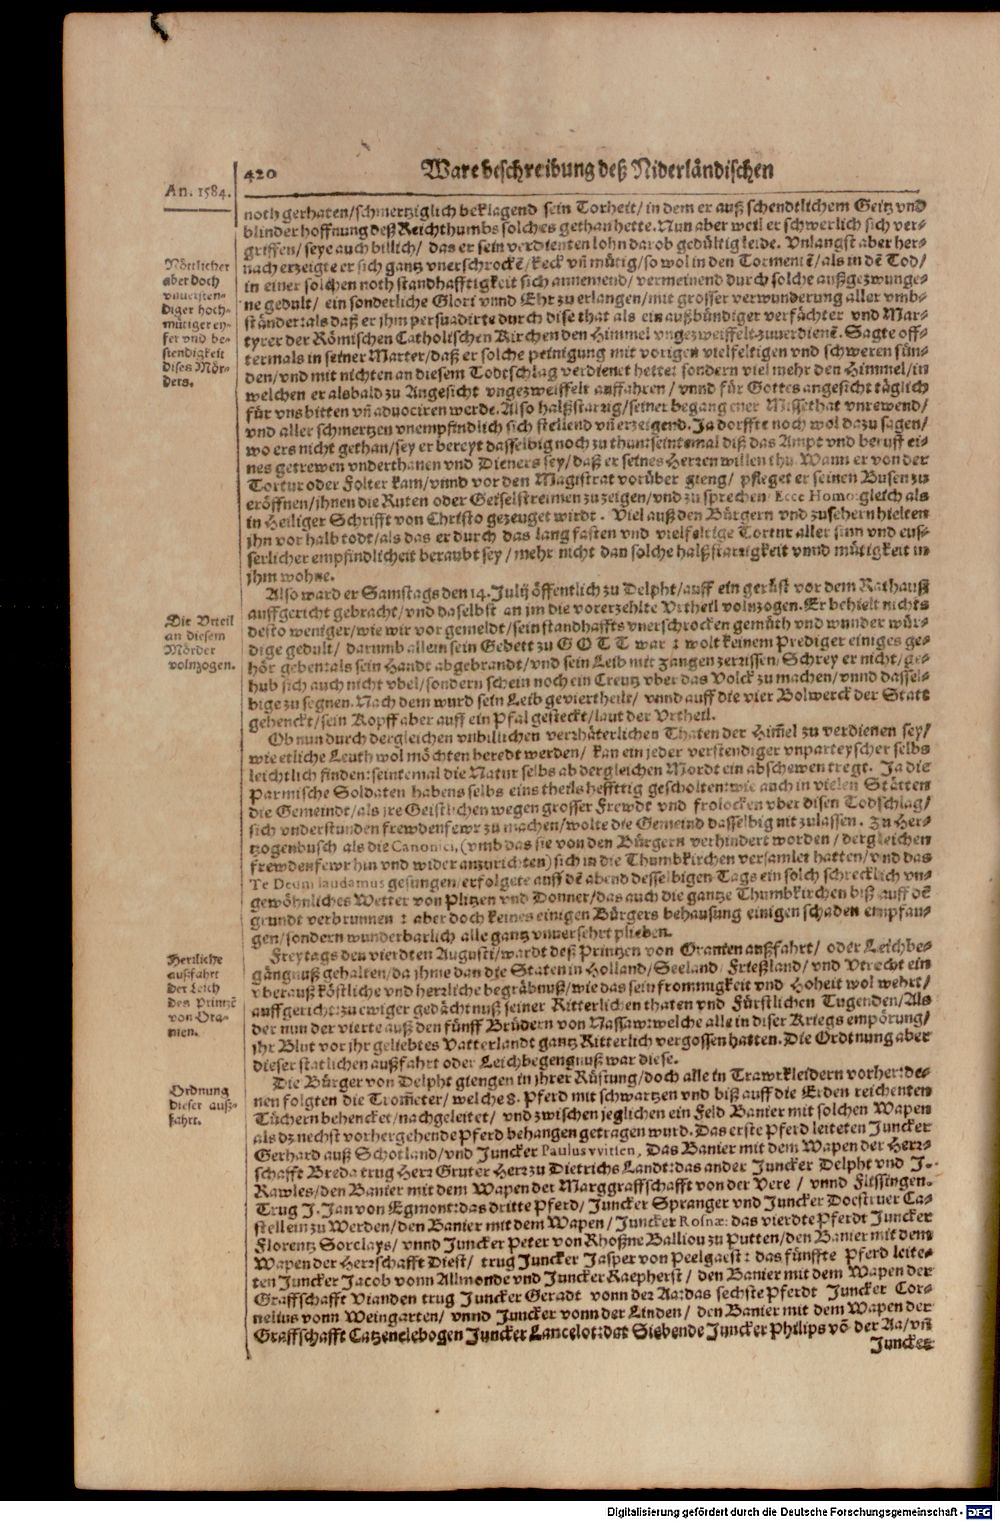 420 Ware beschreibung deß Niderländischen
An. 1584.
noth gerhaten/schmertziglich beklagend sein Torheit/in dem er auß schendtlichem Geitz vnd
blinder hoffnung deß Reichthumbs solches gethan hette. Nun aber weil er schwerlich sich ver-
griffen/seye auch billich/ das er sein verdienten lohn darob gedültig leide. Vnlangst aber her-
nach erzeigte er sich gantz vnerschrockē/keck vñ mütig/so wol in den Tormentē/als in dē Tod/
in einer solchen noth standhafftigkeit sich annemend/ vermeinend durch solche außgezwunge-
ne gedult/ ein sonderliche Glori vnnd Ehr zu erlangen/mit grosser verwunderung aller vmb-
ständer: als daß er jhm persuadirte durch dise that als ein außbündiger verfächter vnd Mar-
tyrer der Römischen Catholischen Kirchen den Himmel vngezweiffelt zuuerdienē. Sagte off-
termals in seiner Marter/daß er solche peinigung mit vorigen vielfeltigen vnd schweren sün-
den/vnd mit nichten an diesem Todtschlag verdienet hette: sondern viel mehr den Himmel/in
welchen er alsbald zu Angesicht vngezweiffelt auffahren/ vnnd für Gottes angesicht täglich
für vns bitten vñ aduociren werde. Also halßstarrig/seiner begangener Missethat vnrewend/
vnd aller schmertzen vnempfindlich sich stellend vñ erzeigend. Ja dorffte noch wol dazu sagen/
wo ers nicht gethan/sey er bereyt dasselbig noch zu thun: seintemal diß das Ampt vnd beruff ei-
nes getrewen vnderthanen vnd Dieners sey/daß er seines Herren willen thu. Wann er von der
Tortur oder Folter kam/vnnd vor den Magistrat vorüber gieng/ pfleget er seinen Busen zu
eröffnen/jhnen die Ruten oder Geiselstreimen zu zeigen/vnd zu sprechen Ecce Homo: gleich als
in Heiliger Schrifft von Christo gezeuget wirdt. Viel auß den Bürgern vnd zusehern hielten
jhn vor halb todt/als das er durch das lang fasten vnd vielfeltige Tortur aller sinn vnd eus-
serlicher empfindlicheit beraubt sey/mehr nicht dan solche halßstarrigkeit vnnd mütigkeit in
jhm wohne.
Nöttlicher
aber doch
vnuersten-
diger hoch-
mütiger ey-
fer vnd be-
stendigkeit
dises Mör-
ders.
Also ward er Samstags den 14. Julij öffentlich zu Delpht/auff ein gerüst vor dem Rathauß
auffgericht gebracht/vnd daselbst an jm die vorerzehlte Vrtheil volnzogen. Er behielt nichts
desto weniger/wie wir vor gemeldt/sein standhaffts vnerschrocken gemüth vnd wunder wür-
dige gedult/ darumb allein sein Gebett zu GOTT war: wolt keinem Prediger einiges ge-
hör geben: als sein Handt abgebrandt/vnd sein Leib mit zangen zerissen/Schrey er nicht/ge-
hub sich auch nicht vbel/sondern schein noch ein Creutz vber das Volck zu machen/vnnd dassel-
bige zu segnen. Nach dem wurd sein Leib geviertheilt/ vnnd auff die vier Bolwerck der Statt
gehenckt/sein Kopff aber auff ein Pfal gesteckt/laut der Vrtheil.
Die Vrteil
an diesem
Mörder
volnzogen.
Ob nun durch dergleichen vnbillichen verrhäterlichen Thaten der Him̄el zu verdienen sey/
wie etliche Leuth wol möchten beredt werden/ kan ein jeder verstendiger vnparteyscher selbs
leichtlich finden: seintemal die Natur selbs ab dergleichen Mordt ein abschewen tregt. Ja die
Parmische Soldaten habens selbs eins theils hefftig gescholten: wie auch in vielen Stätten
die Gemeindt/als jre Geistlichen wegen grosser Frewdt vnd frolocken vber disen Todschlag/
sich vnderstunden frewdenfewr zu machen/wolte die Gemeind dasselbig nit zulassen. Zu Her-
tzogenbusch als die Canonici, (vmb das sie von den Bürgern verhindert worden/ dergleichen
frewdenfewr hin vnd wider anzurichten) sich in die Thumbkirchen versamlet hatten/vnd das
Te Deum laudamus gesungen/erfolgete auff dē abend desselbigen Tags ein solch schrecklich vn-
gewöhnliches Wetter von Plitzen vnd Donner/das auch die gantze Thumbkirchen biß auff dē
grundt verbrunnen: aber doch keines einigen Bürgers behausung einigen schaden empfan-
gen/sondern wunderbarlich alle gantz vnuersehrt plieben.
Freytags den vierdten Augusti/wardt deß Printzen von Oranien außfahrt/ oder Leichbe-
gängnuß gehalten/da jhme dan die Staten in Holland/Seeland/Frießland/vnd Vtrecht ein
vberauß köstliche vnd herrliche begräbnuß/wie das sein frommigkeit vnd Hoheit wol wehrt/
auffgericht: zu ewiger gedächtnuß seiner Ritterlichen thaten vnd Fürstlichen Tugenden/Als
der nun der vierte auß den fünff Brüdern von Nassaw: welche alle in diser Kriegs empörung/
jhr Blut vor jhr geliebtes Vatterlandt gantz Ritterlich vergossen hatten. Die Ordtnung aber
dieser statlichen außfahrt oder Leichbegengnuß war diese.
Herrliche
außfahrt
der Leich
des Printzē
von Ora-
nien.
Die Bürger von Delpht giengen in jhrer Rüstung/doch alle in Trawrkleidern vorher: de-
nen folgten die Trometer/ welche 8. Pferd mit schwartzen vnd biß auff die Erden reichenten
Tüchern behencket/nachgeleitet/ vnd zwischen jeglichen ein Feld Banier mit solchen Wapen
als dz nechst vorhergehende Pferd behangen getragen wurd. Das erste Pferd leiteten Juncker
Gerhard auß Schotland/vnd Juncker Paulus VVitlen, Das Banier mit dem Wapen der Herr-
schafft Breda trug Herr Gruter Herr zu Dietrichs Landt: das ander Juncker Delpht vnd J.
Rawles/den Banier mit dem Wapen der Marggraffschafft von der Vere/ vnnd Flissingen.
Trug J. Jan von Egmont: das dritte Pferd/ Juncker Spranger vnd Juncker Doestruer Ca-
stellein zu Werden/den Banier mit dem Wapen/Juncker Rosnæ: das vierdte Pferdt Juncker
Florentz Sorclays/ vnnd Juncker Peter von Rhoßne Balliou zu Putten/den Banier mit dem
Wapen der Herrschafft Diest/ trug Juncker Jasper von Peelgaest: das fünffte Pferd leite-
ten Juncker Jacob vonn Allmonde vnd Juncker Raepherst/ den Banier mit dem Wapen der
Graffschafft Vianden trug Juncker Geradt vonn der Aa: das sechste Pferdt Juncker Cor-
nelius vonn Weingarten/ vnnd Juncker vonn der Linden/ den Banier mit dem Wapen der
Graffschafft Catzenelebogen Juncker Lancelot: dat Siebende Juncker Philips vō der Aa/vñ
Juncker
Ordnung
dieser auß-
fahrt.
Digitalisierung gefördert durch die Deutsche Forschungsgemeinschaft - DFG